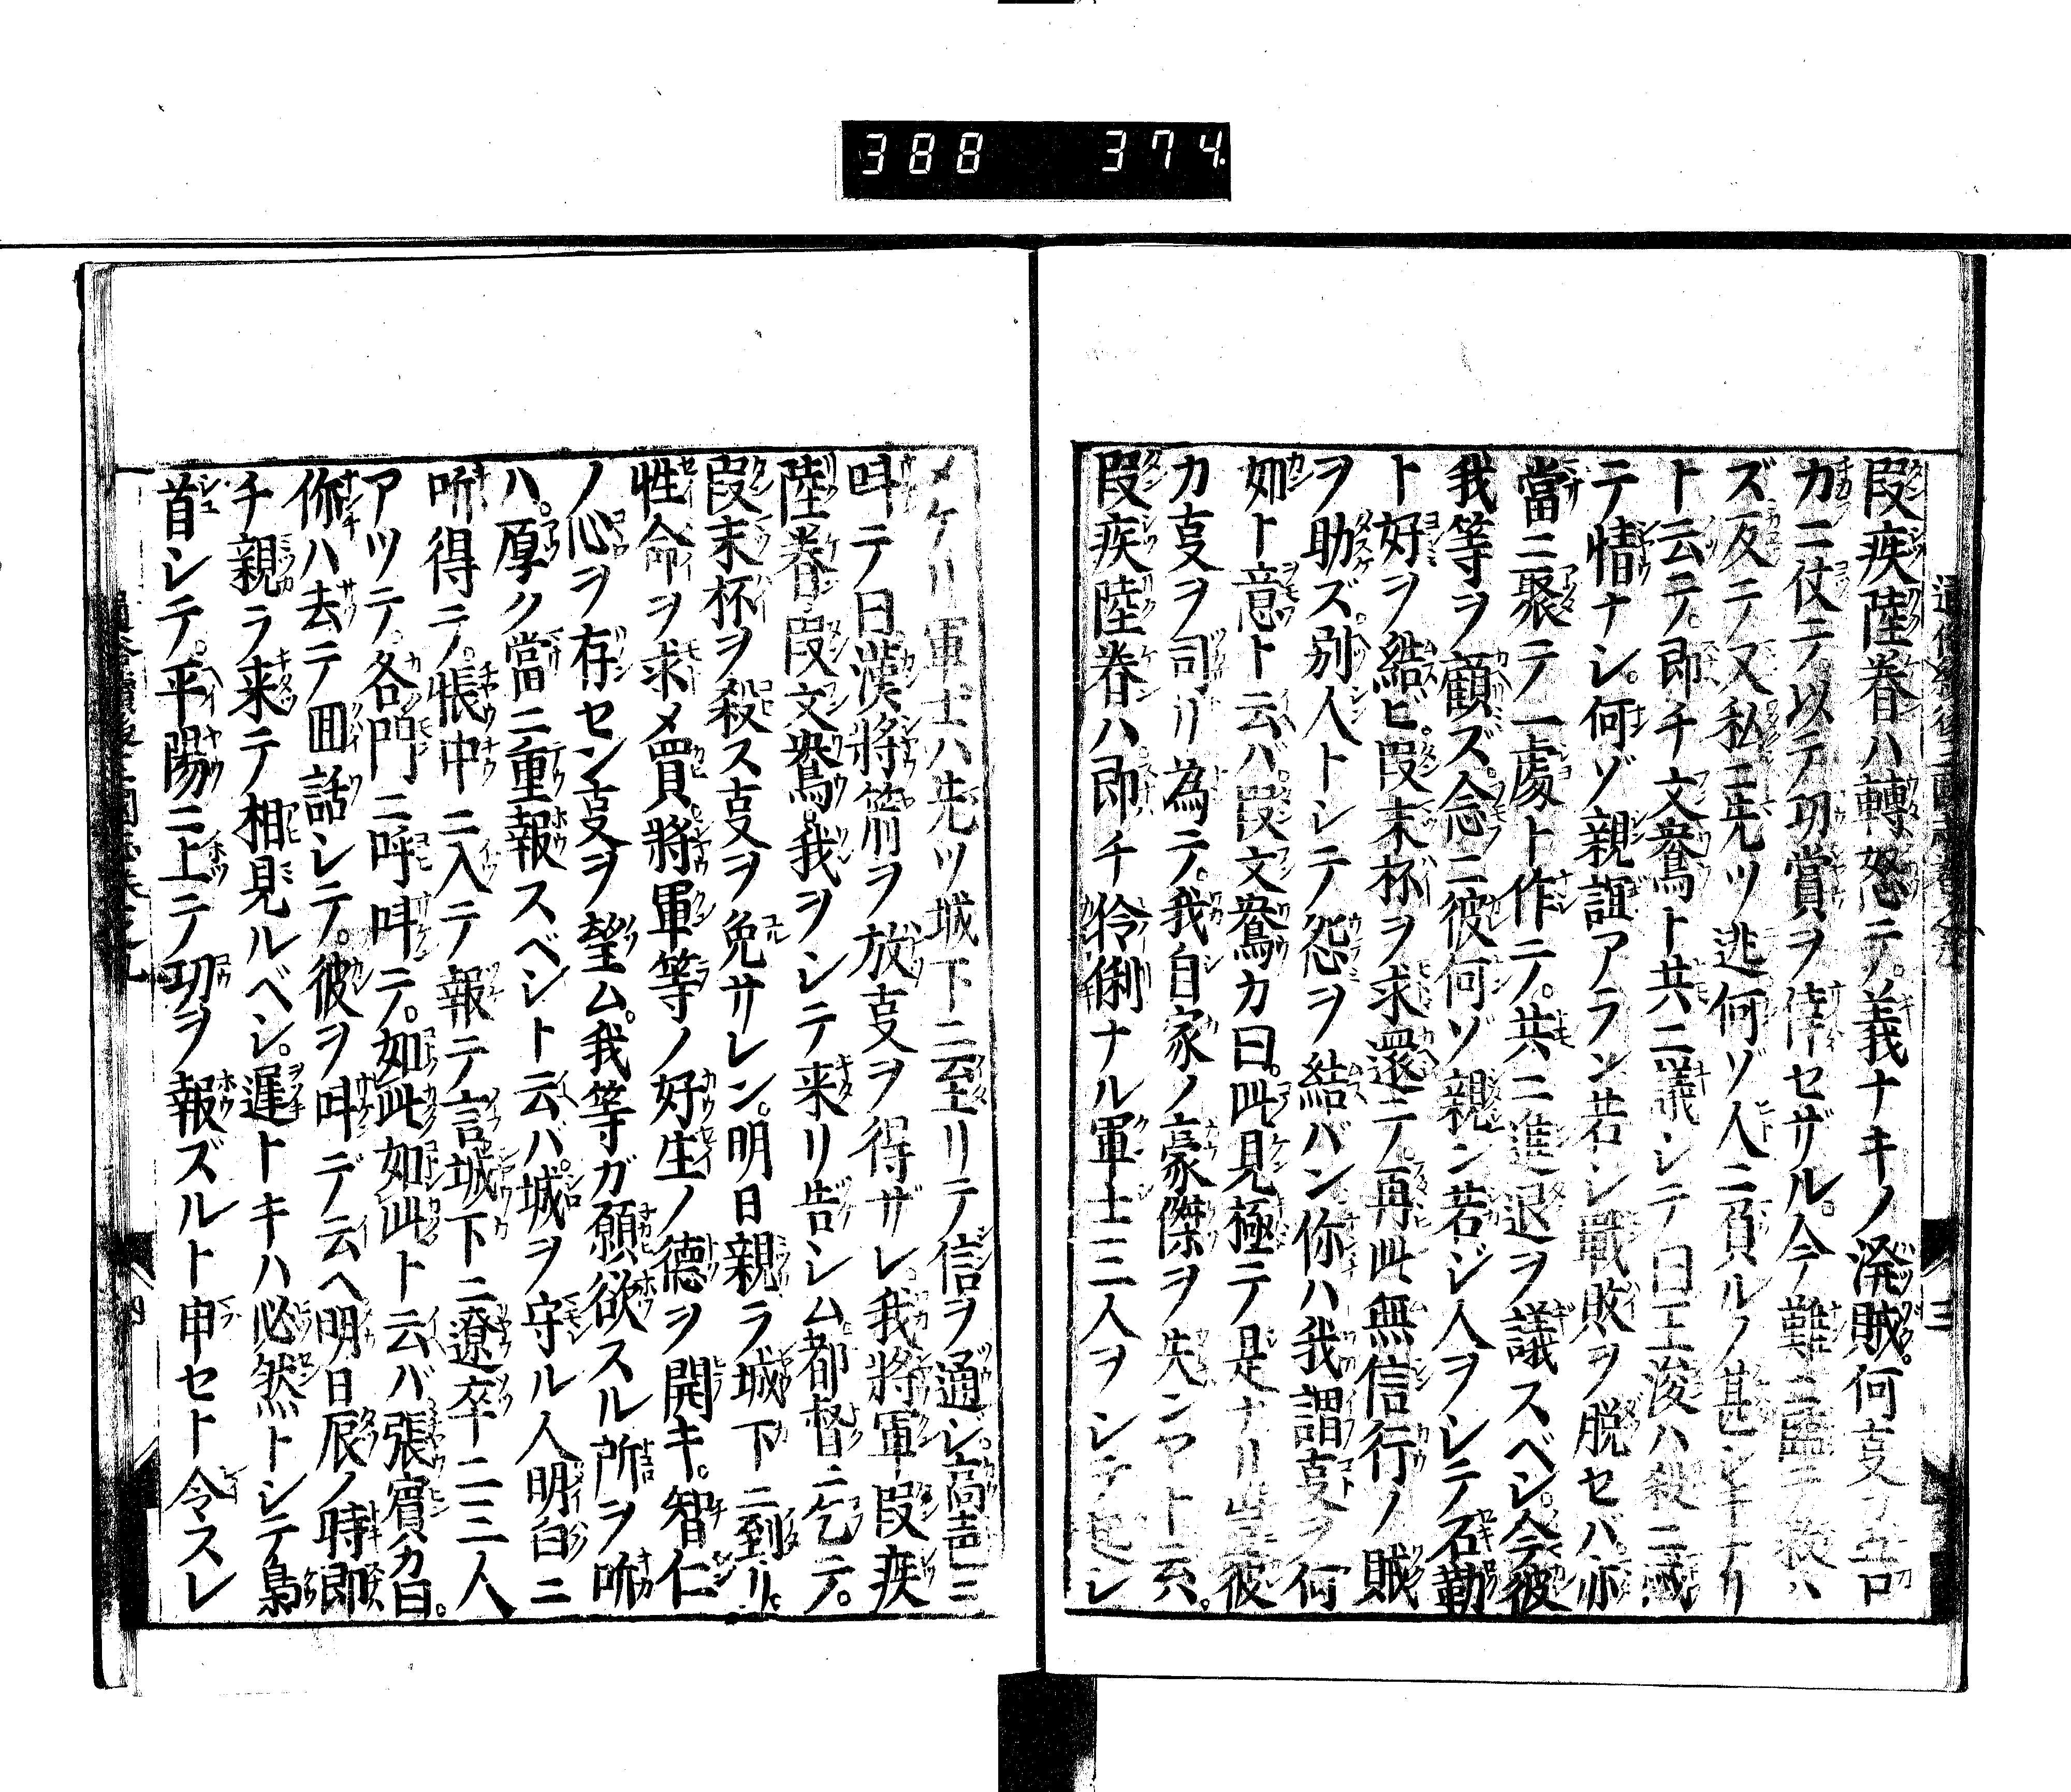 388 374
段疾陸眷ハ轉怒テ。義ナキノ溌賊。何叓ヲ吾
カニ仗テ以テ功賞ヲ倖セザル。今難ニ臨テ救ハ
ズ反テ又私ニ先ツ逃何ゾ人ニ負ルノ甚シキナリ
ト云テ。即チ文鴦ト共ニ議シテ曰王浚ハ殺ニ減
テ情ナシ。何ゾ親誼アラン若シ戰敗ヲ脱セバ。亦
當ニ聚テ一處ト作テ。共ニ進退ヲ議スベシ。今彼
我等ヲ顧ズ。念ニ彼何ゾ親ン若ジ人ヲシテ石勒
ト好ヲ結ビ。段末杯ヲ求還テ。再此無信行ノ賊
ヲ助ズ。別人トシテ怨ヲ結バン你ハ我謂叓ヲ何
如ト意ト云バ。段文鴦カ曰。此見極テ是ナリ豈彼
カ叓ヲ司リ為テ。我自家ノ豪傑ヲ失ンヤト云。
段疾陸眷ハ即チ伶俐ナル軍士三人ヲシテ
メケリ軍士ハ先ツ城下ニ至リテ信ヲ通ジ。高声ニ
呌テ曰漢將箭ヲ放叓ヲ得ザレ。我將軍段疾
陸眷。段文鴦。我ヲシテ来リ告シム都督ニ乞テ。
段末杯ヲ殺ス叓ヲ免サレン。明日親ラ城下ニ到リ。
性命ヲ求メ買。將軍等ノ好生ノ德ヲ開キ。智仁
ノ心ヲ存セン叓ヲ望ム。我等ガ願欲スル所ヲ吩
ハ。厚ク當ニ重報スベシト云バ。城ヲ守ル人明白ニ
听得テ。帳中ニ入テ報テ言城下ニ遼卒二三人
アツテ。各門ニ呼呌テ。如此如此ト云バ。張賓カ曰。
你ハ去テ回話シテ。彼ヲ呌デ云ヘ明日辰ノ時即
チ親ラ来テ相見ルベシ。遲トキハ必然トシテ梟
首シテ。平陽ニ上テ功ヲ報ズルト申セト令スレ